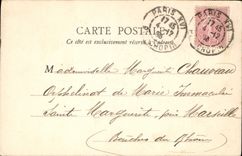 PARIS XVI
17 45
CARTE POSTALE
Ce côté est exclusivement réservé à l'adresse
Mademoiselle Marguerite Chauveau
Orphelinat de Marie Immaculée
Sainte Marguerite, près Marseille
Bouches du Rhône